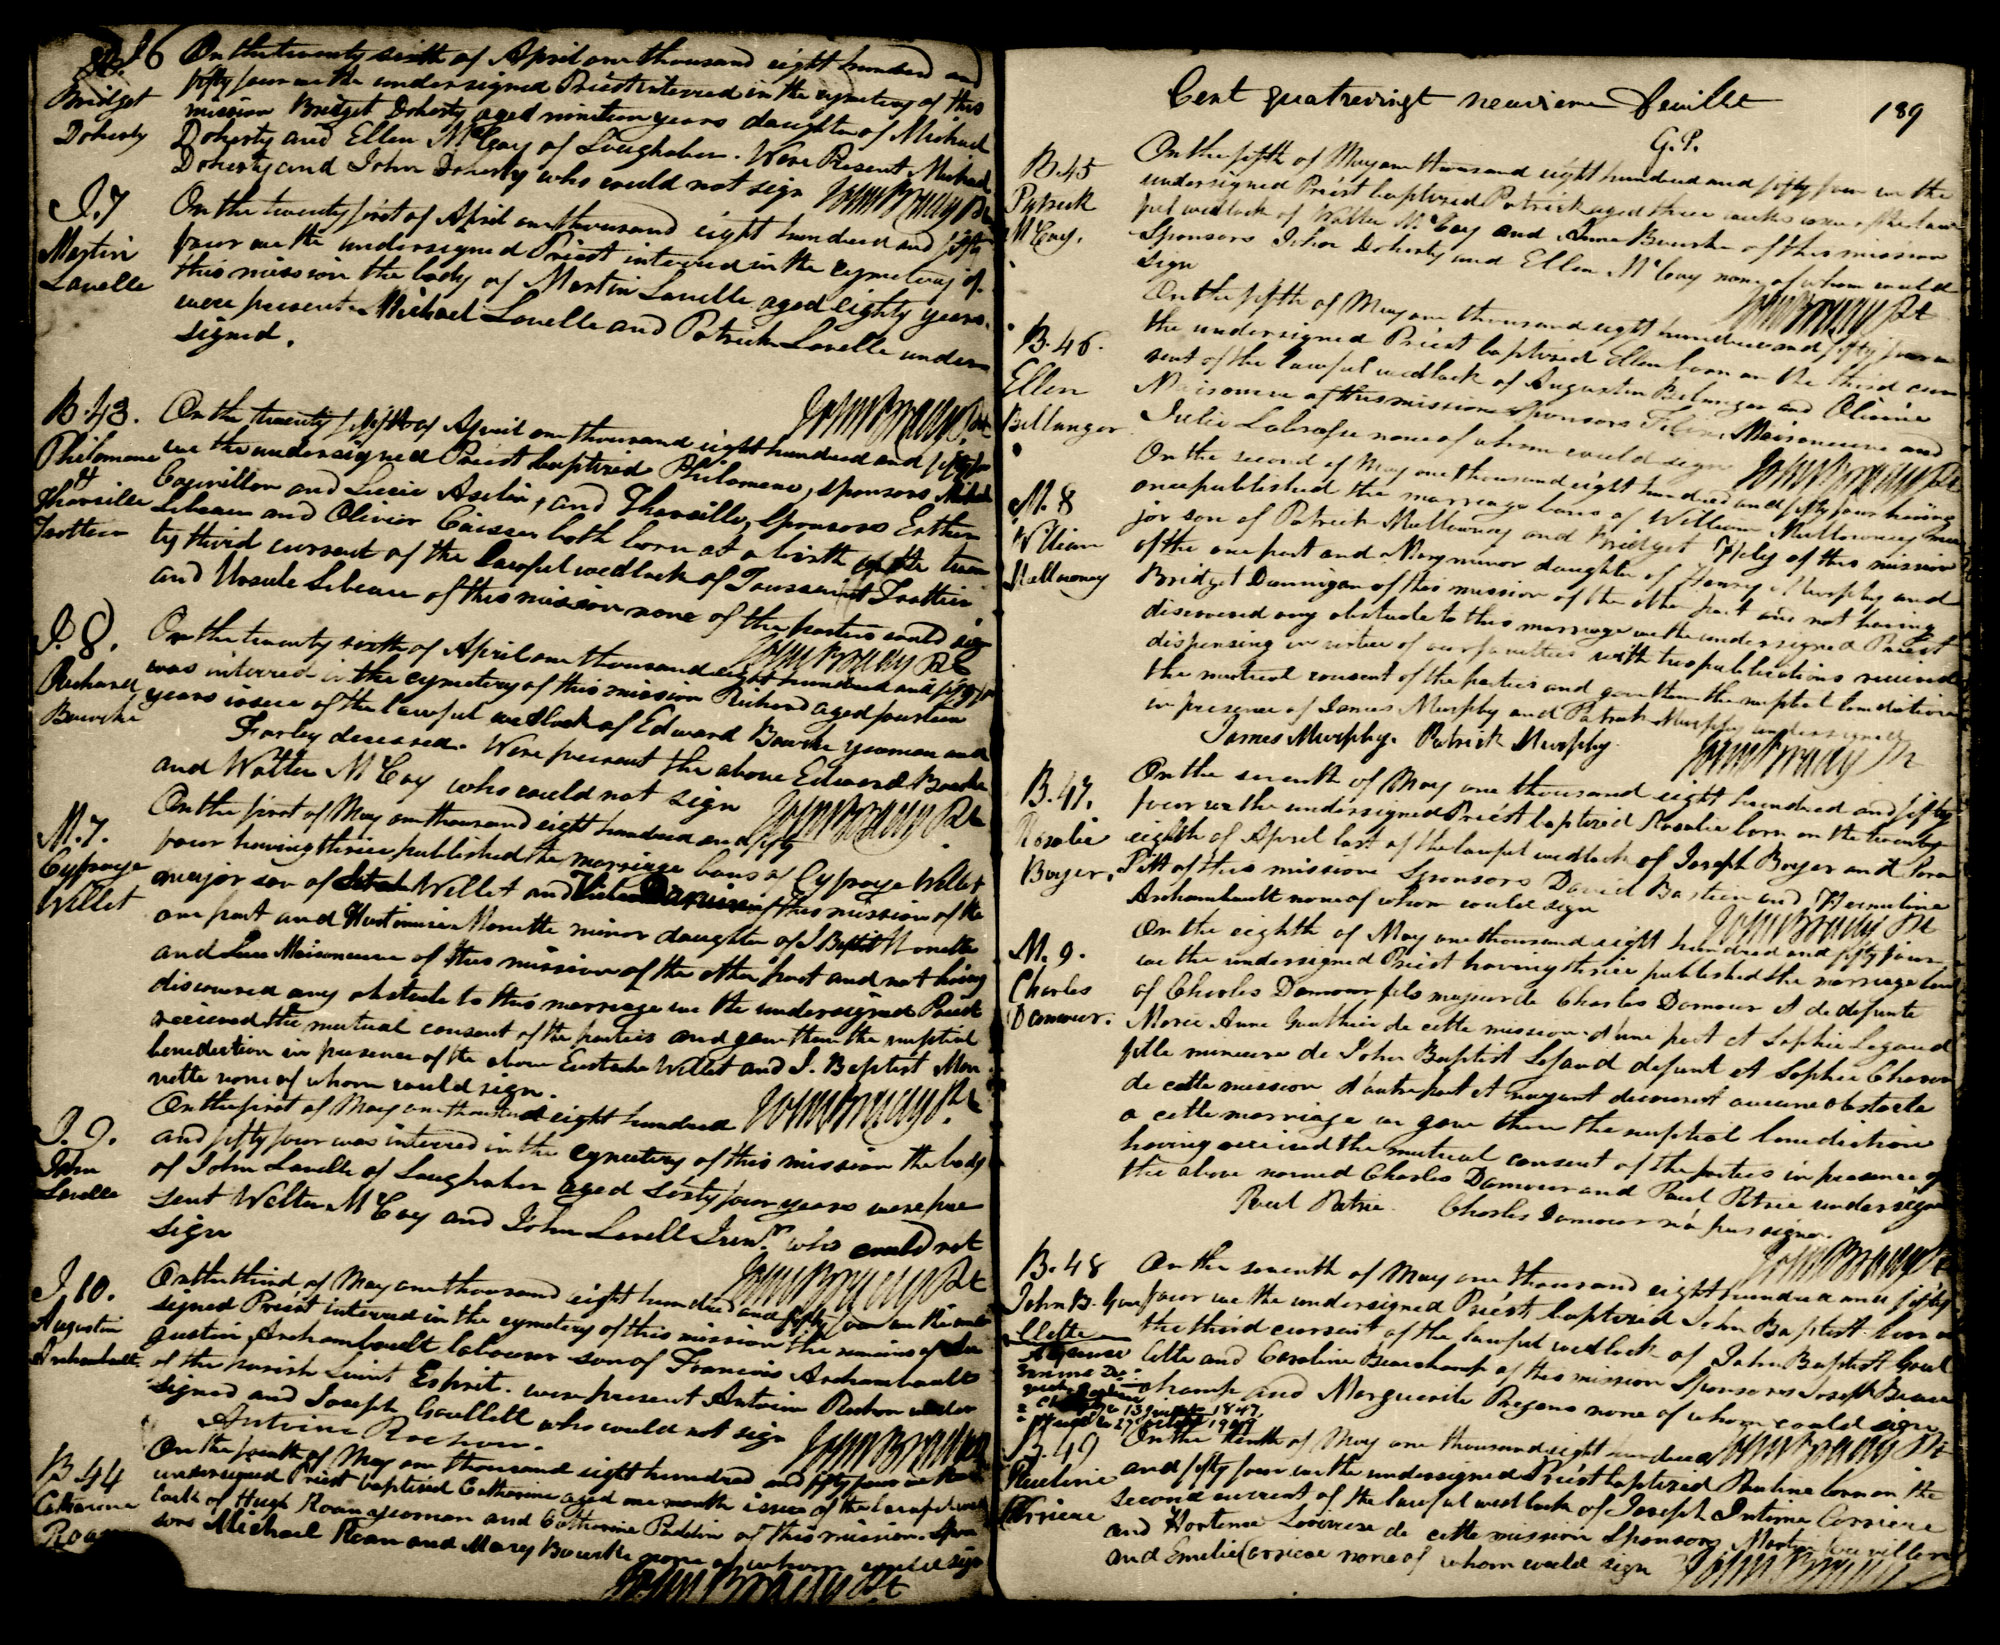 I. 6
Bridget
Doherty
On the twenty sixth of April one thousand eight hundred and
fifty four we the undersigned Priest interred in the cymetery of this
mission Bridget Doherty aged ninteen years daughter of Michael
Doherty and Ellen McCoy of Loughaber. Were Present Michael
Doherty and John Doherty who could not sign John Brady Pt
I. 7
Martin
Lavelle
On the twenty first of April one thousand eight hundred and fifty
four we the undersigned Priest interred in the cymetery of
this mission the body of Martin Lavelle aged eighty years.
were present Michael Lavelle and Patrick Lavelle under
signed.
John Brady Pt
B. 43.
Philomene
et
Tharsille
Trottier
On the twenty fifth of April one thousand eight hundred and fifty four
we the undersigned Priest baptized Philomene, sponsors Michel
and Lucie Aselin, and Tharsille, Sponsors Esther
Lebeau and Olivier both born at a birth on the twen
ty third current of the lawful wedlock of Toussaint Trottier
and Ursule Lebeau of this mission none of the parties could sign
John Brady Pt
I. 8.
Richard
Bourke
On the twenty sixth of April one thousand eight hundred and fifty four
was interred in the cymetery of this mission Richard aged fourteen
years issue of the lawful wedlock of Edward Bourke yeoman and
Farley deceased. Were present the above Edward Bourke
and Walter McCoy who could not sign John Brady Pt
M. 7.
Cypraye
Willet
On the first of May one thousand eight hundred and fifty
four having thrice published the marriage bans of Cypraye Willet
major son of Willet and of this mission of the
one part and Monette minor daughter of J. Baptist Monette
and Luce Maisoneuve of this mission of the other part and not having
discovered any obstacle to this marriage we the undersigned Priest
received the mutual consent of the parties and gave them the nuptial
benediction in presence of the above Eustache Willet and J. Baptist Mon
nette none of whom could sign. John Brady Pt
I. 9.
John
Lavelle
On the first of May one thousand eight hundred
and fifty four was interred in the cymetery of this mission the body
of John Lavelle of Laughaber aged sixty four years were pre
sent Walter McCoy and John Lavell Junr. who could not
sign
John Brady Pt
I. 10.
Augustin
Archambault
On the third of May one thousand eight hundred and fifty four we the under
signed Priest interred in the cymetery of this mission the remains of Au
gustin Archambault labourer son of Francois Archambault
of the parish Saint Esprit. were present Antoine Rochon under
signed and Joseph Goullett who could not sign John Brady
Antoine Rochon.
B 44
Catharine
Roan
On the fourth of May one thousand eight hundred and fifty four we the
undersigned Priest baptized Catharine aged one month issue of the lawful wed
lock of Hugh Roan yeoman and Catharine Paddin of this mission. Spon
sors Michael Roan and Mary Bourke none of whom could sign
John Brady Pt
Cent quatrevingt neuvieme feuillet
189
G. P.
B. 45
Patrick
McCoy.
On the fifth of May one thousand eight hundred and fifty four we the
undersigned Priest baptized Patrick aged three weeks issue of the law
ful wedlock of Walter McCoy and Anne Bourke of this mission
Sponsors John Doherty and Ellen McCoy none of whom could
sign
John Brady Pt
B. 46.
Ellen
Bellanger
On the fifth of May one thousand eight hundred and fifty four we
the undersigned Priest baptized Ellen born on the third cur
rent of the lawful wedlock of Augustin Belanger and Olivine
Maisoneuve of this mission Sponsors Maisoneuve and
Julie none of whom could sign John Brady Pt
M. 8
William
Mullowney
On the second of May one thousand eight hundred and fifty four having
once published the marriage bans of William Mullowney ma
jor son of Patrick Mullowney and Bridget of this mission
of the one part and Mary minor daughter of Henry Murphy and
Bridget Dannigan of this mission of the other part and not having
discovered any obstacle to this marriage we the undersigned Priest
dispensing in virtue of our faculties with two publications received
the mutual consent of the parties and gave them the nuptial benediction
in presence of James Murphy and Patrick Murphy undersigned
James Murphy. Patrick Murphy. John Brady Pt
B. 47.
Rosalie
Boyer.
On the seventh of May one thousand eight hundred and fifty
four we the undersigned Priest baptized Rosalie born on the twenty
eighth of April last of the lawful wedlock of Joseph Boyer and
Pitt of this mission Sponsors David Bastien and Hermeline
Archambault none of whom could sign John Brady Pt
M. 9.
Charles
Damour.
On the eighth of May one thousand eight hundred and fifty four
we the undersigned Priest having thrice published the marriage bans
of Charles Damour fils majeur de Charles Damour et de defunte
Marie Anne Gauthier de cette mission d'une part et Sophie Legaud
fille mineure de John Baptist Legaud defunt et Sophie
de cette mission d'autre part et n'ayant decouvert aucune obstacle
a cette marriage we gave them the nuptial benediction
having received the mutual consent of the parties in presence of
the above named Charles Damour and Paul Patrie undersigned
Paul Patrie. Charles Damour n'a pas signe.
John Brady Pt
B. 48
John B. Gou
llette
On the seventh of May one thousand eight hundred and fifty
four we the undersigned Priest baptized John Baptist born on
the third current of the lawful wedlock of John Baptist Goul
lette and Caroline Beauchamp of this mission Sponsors Joseph Beau
champ and Marguerite none of whom could sign
John Brady Pt
B. 49
Pauline
Carriere
On the tenth of May one thousand eight hundred
and fifty four we the undersigned Priest baptized Pauline born on the
second current of the lawful wedlock of Joseph Antime Carriere
and Hortense de cette mission Sponsors Martin
and Emelie Carriere none of whom could sign John Brady